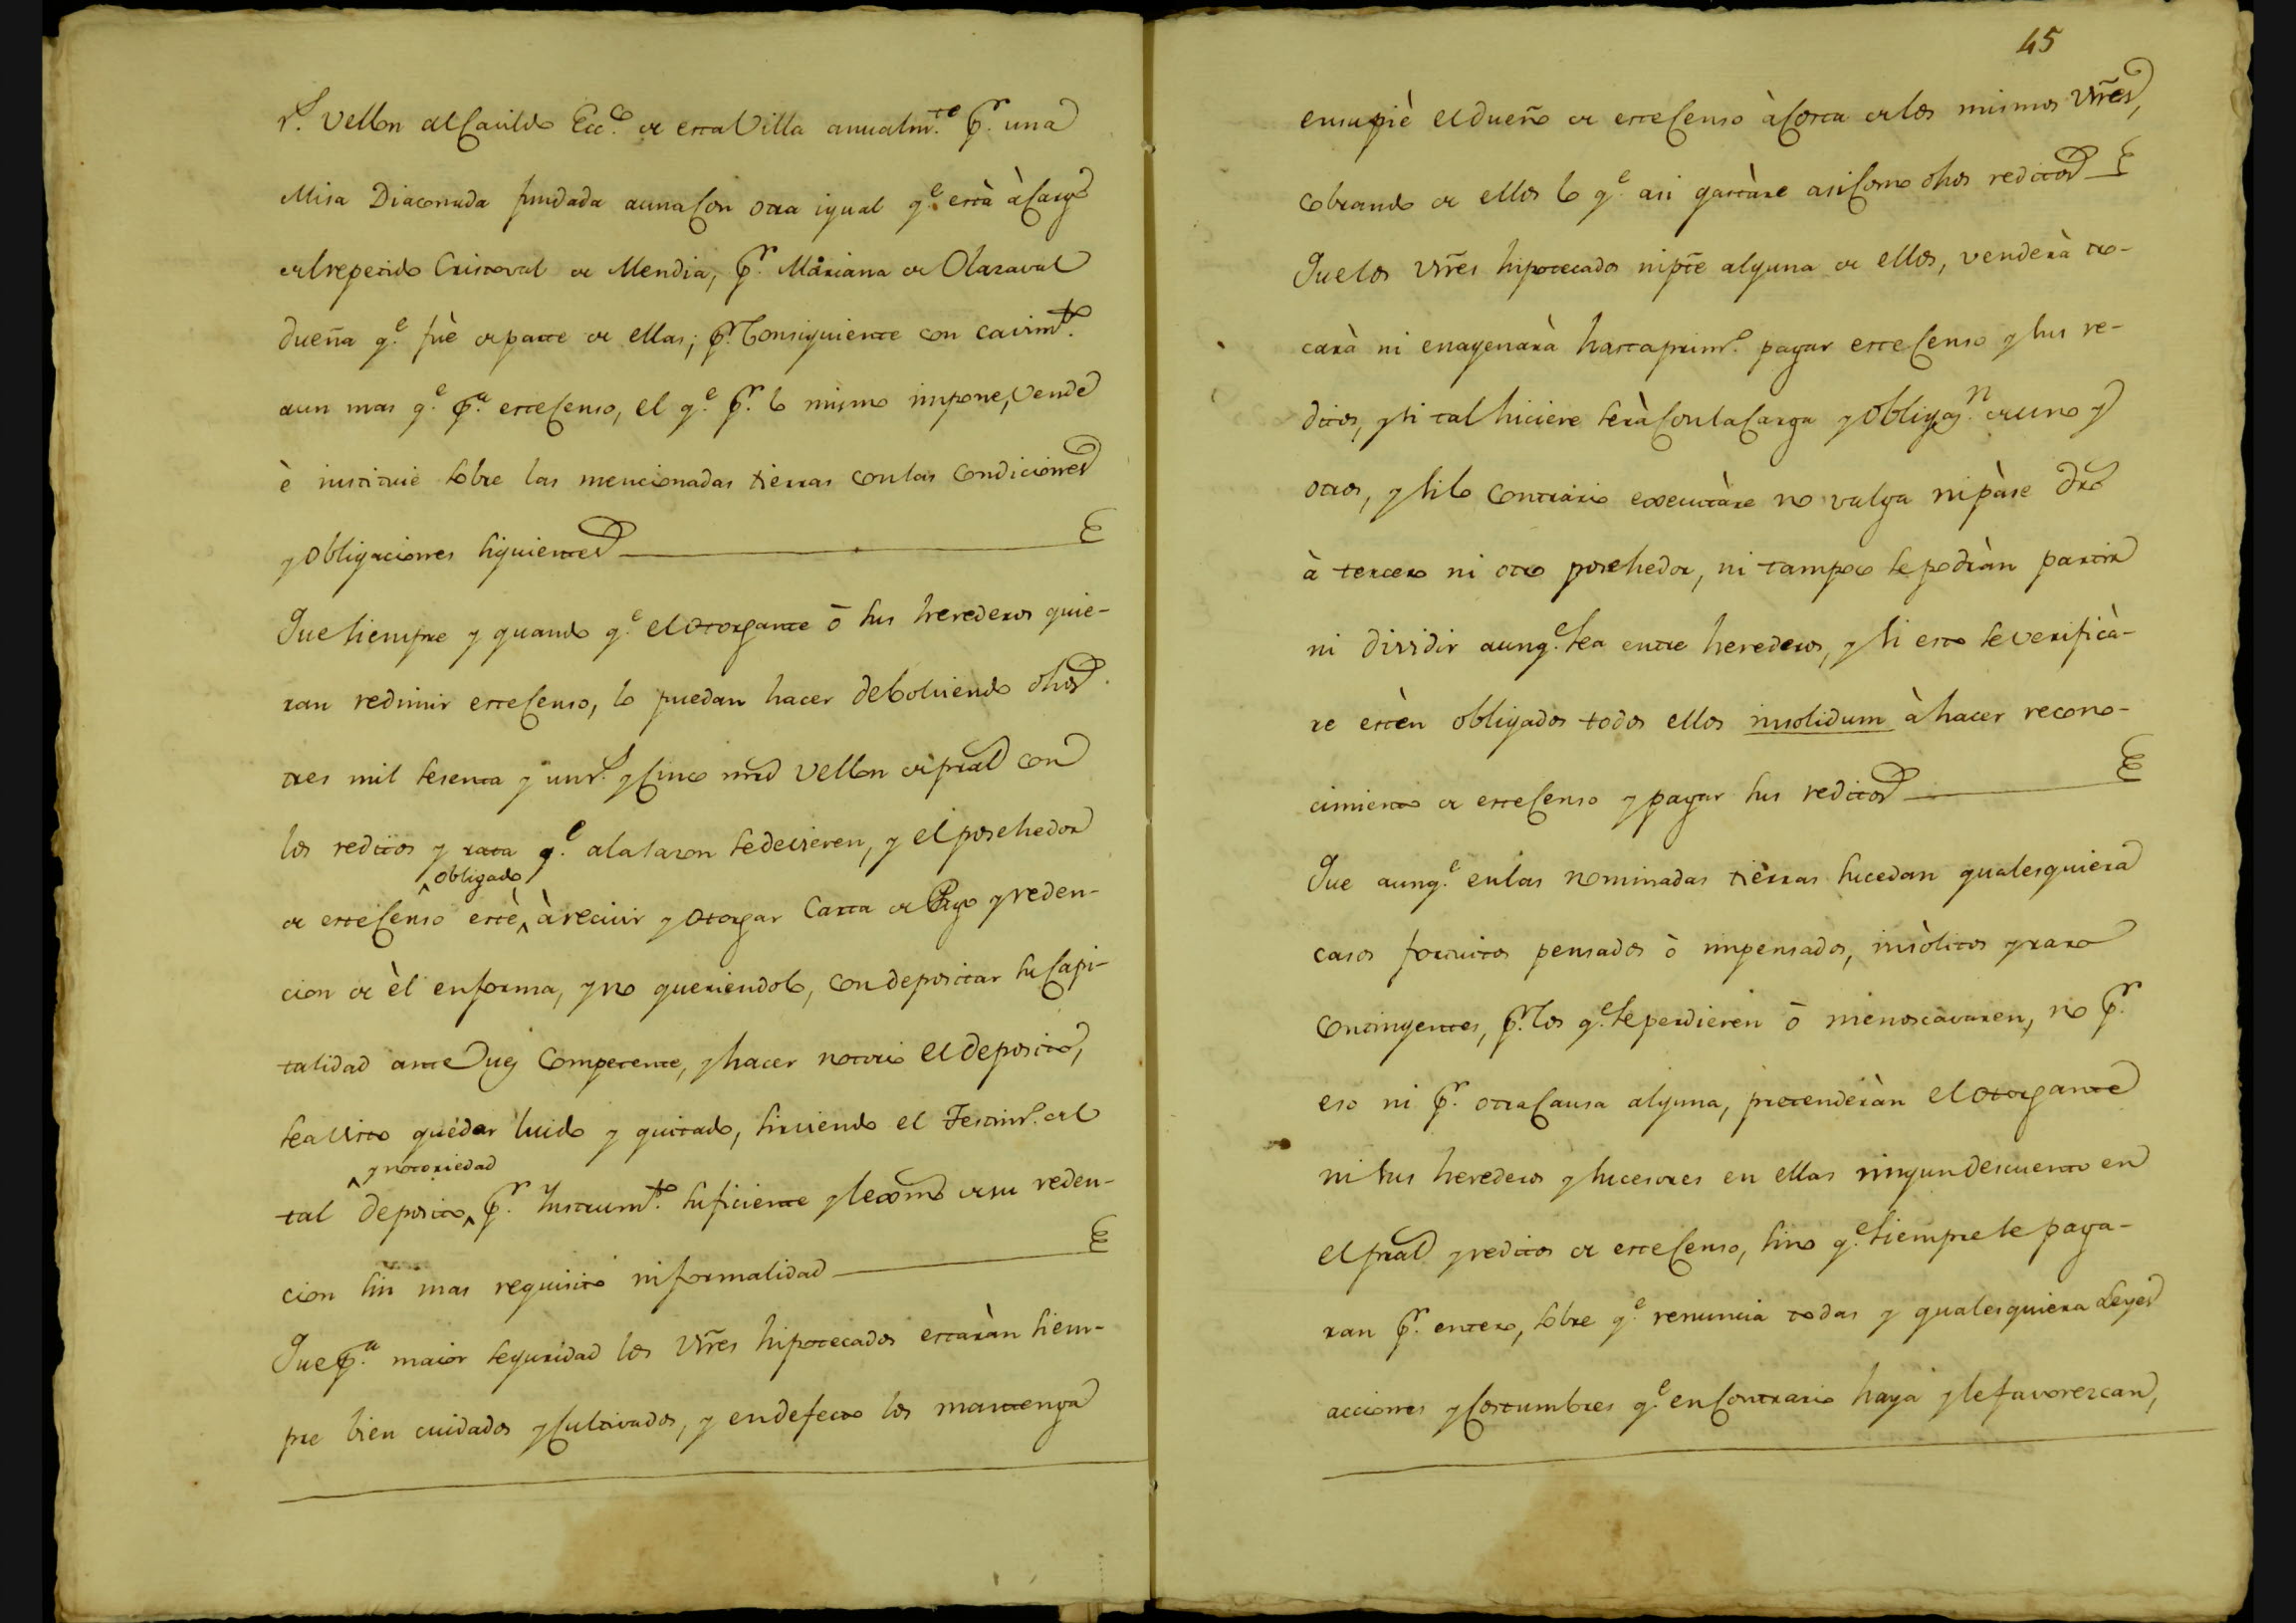 r.s Vellon al Cavildo Ecc.co de esta Villa anualm.te p.r una
Misa Diaconada fundada auna con otra igual q.e está à Cargo
del repetido Cristoval de Mendia, p.r Mariana de Olazaval
dueña q.e fuè de parte de ellas; p.r Consiguiente con cavim.to
aun mas q.e p.a este Censo, el q.e p.r lo mismo impone, vende
è instituie sobre las mencionadas tierras con las Condiciones
y Obligaciones siguientes
Que siempre y quando q.e el Otorgante ò sus herederos quie-
ran redimir este Censo, lo puedan hacer debolviendo dhos
tres mil sesenta y un r.s y Cinco mrs Vellon de pral con
los reditos y rata q.e ala sazon se devieren, y el posehedor
de este Censo estè obligado à recivir y Otorgar Carta de Pago y reden-
cion de èl en forma, y no queriendolo, con depositar su Capi-
talidad ante Juez Competente, y hacer notorio el deposito,
sea visto quedar luido y quitado, sirviendo el Testim.o del
tal deposito y notoriedad p.r Instrum.to suficiente y lexmo de su reden-
cion sin mas requisito ni formalidad
Que p.a maior seguridad los Vñes hipotecados estaràn siem-
pre bien cuidados y Cultivados, y en defecto los mantenga
45
ensupiè el dueño de este Censo à Costa de los mismos Vñes,
cobrando de ellos lo q.e asi gastàre asi Como dhos reditos
Que los Vñes hipotecados ni pte alguna de ellos, venderà tro-
carà ni enagenarà hasta prim.o pagar este Censo y sus re-
ditos, y si tal hiciere serà con la Carga y Obligaz.n de uno y
otros, y si lo Contrario executàre no valga ni pàse dro
à tercero ni otro posehedor, ni tampoco se podràn partir
ni dividir aunq.e sea entre herederos, y si esto se verificà-
re estèn obligados todos ellos insolidum à hacer recono-
cimiento de este Censo y pagar sus reditos
Que aunq.e en las nominadas tierras sucedan qualesquiera
casos fortuitos pensados ò impensados, insòlitos y raro
Contingentes, p.r los q.e se perdieren ò menoscavaren, no p.r
eso ni p.r otra Causa alguna, pretenderàn el Otorgante
ni sus herederos y sucesores en ellas ningun descuento en
el pral y reditos de este Censo, sino q.e siempre le paga-
ran p.r entero, sobre q.e renuncia todas y qualesquiera Leyes
acciones y Costumbres q.e en Contrario haya y le favorezcan,